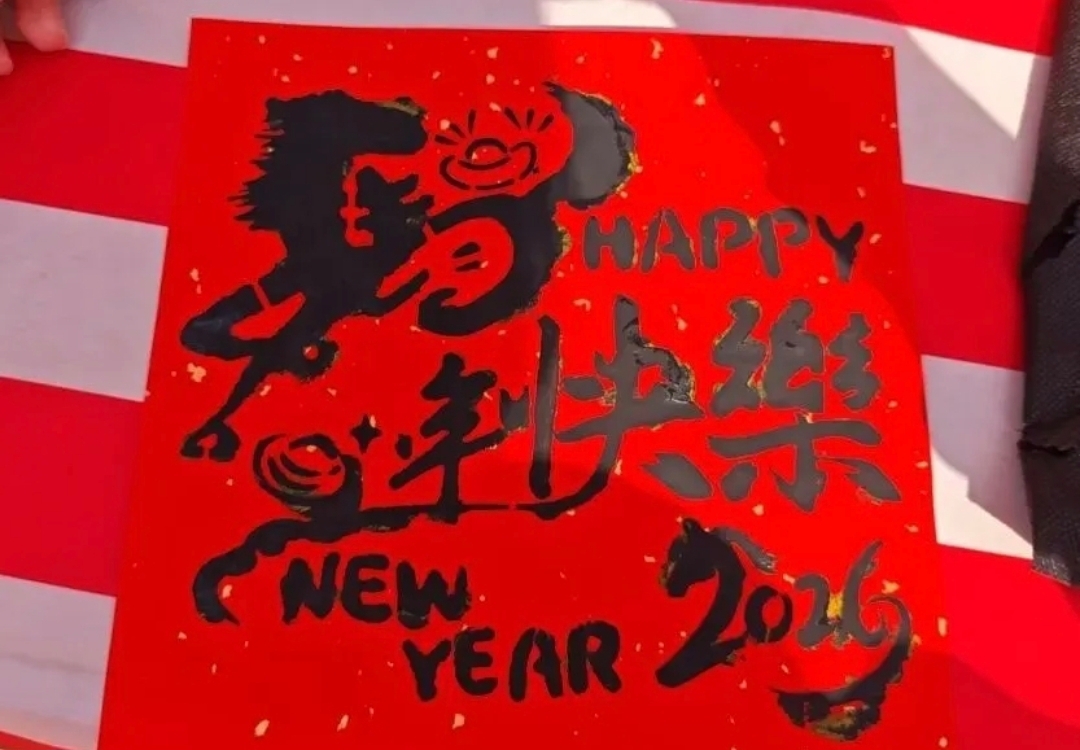 馬年快樂
HAPPY
NEW
YEAR
2026